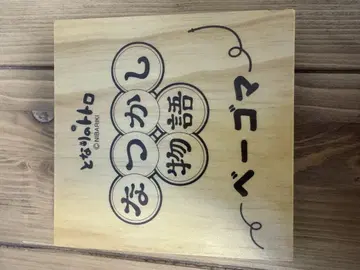 となりのトトロ
©NIBARIKI
なつかし
物語
ベーゴマ